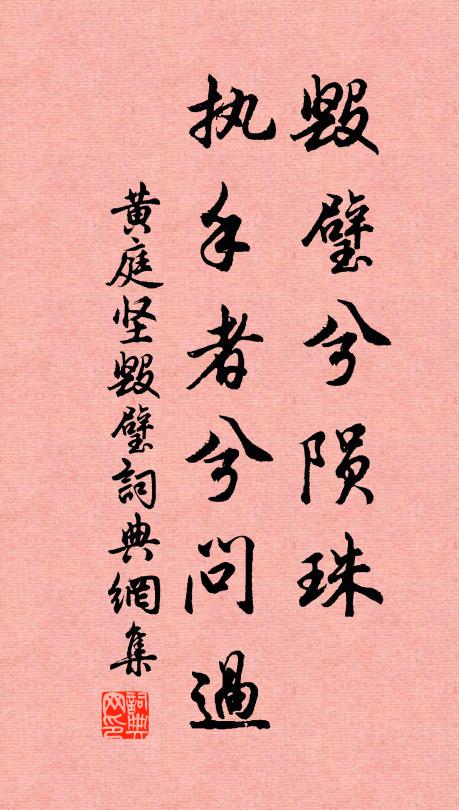 毁璧兮陨珠
执手者兮问过
黄庭坚毁璧詞典網集
詞典网印